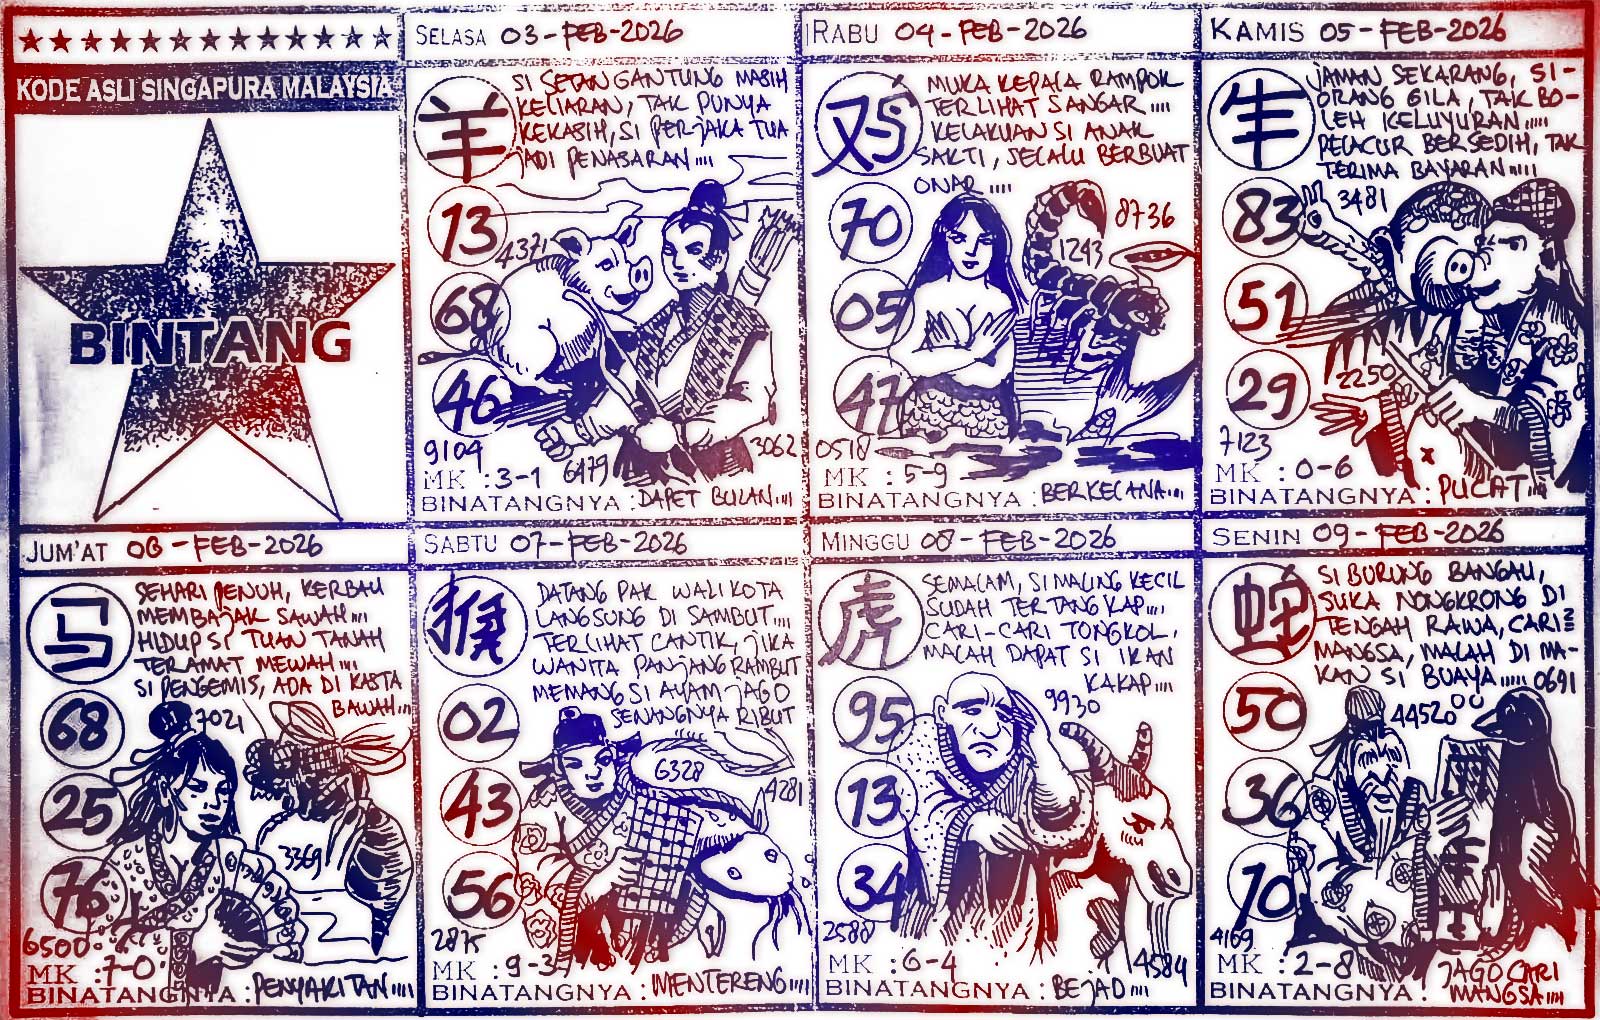 KODE ASLI SINGAPURA MALAYSIA
BINTANG
SELASA 03-FEB-2026
SI SETAN GANTUNG MASIH
KELIARAN, TAK PUNYA
KEKASIH, SI PERJAKA TUA
JADI PENASARAN....
羊
13
68
46
4371
9104
6479
3062
MK : 3-1
BINATANGNYA : DAPET BULAN....
RABU 04-FEB-2026
MUKA KEPALA RAMPOK
TERLIHAT SANGAR....
KELAKUAN SI ANAK
SAKTI, SELALU BERBUAT
ONAR....
70
05
47
8736
1243
0518
MK : 5-9
BINATANGNYA : BERKELANA....
KAMIS 05-FEB-2026
JAMAN SEKARANG, SI-
ORANG GILA, TAK BO-
LEH KELUYURAN.....
PELACUR BERSEDIH, TAK
TERIMA BAYARAN.....
牛
83
51
29
3481
2250
7123
MK : 0-6
BINATANGNYA : PUCAT....
JUM'AT 06-FEB-2026
SEHARI PENUH, KERBAU
MEMBAJAK SAWAH....
HIDUP SI TUAN TANAH
TERAMAT MEWAH....
SI PENGEMIS, ADA DI KASTA
BAWAH....
马
68
25
76
7021
3369
6500
MK : 7-0
BINATANGNYA : PENYAKITAN....
SABTU 07-FEB-2026
DATANG PAK WALIKOTA
LANGSUNG DI SAMBUT....
TERLIHAT CANTIK, JIKA
WANITA PANJANG RAMBUT
MEMANG SI AYAM JAGO
SENANGNYA RIBUT
猴
02
43
56
6328
4281
2875
MK : 9-3
BINATANGNYA : MENTERENG....
MINGGU 08-FEB-2026
SEMALAM, SI MALING KECIL
SUDAH TERTANGKAP....
CARI-CARI TONGKOL,
MALAH DAPAT SI IKAN
KAKAP....
虎
95
13
34
9930
2588
4584
MK : 6-4
BINATANGNYA : BEJAD....
SENIN 09-FEB-2026
SI BURUNG BANGAU,
SUKA NONGKRONG DI
TENGAH RAWA, CARI2
MANGSA, MALAH DI MA-
KAN SI BUAYA.....
蛇
50
36
10
0691
4169
MK : 2-8
BINATANGNYA : JAGO CARI
MANGSA....